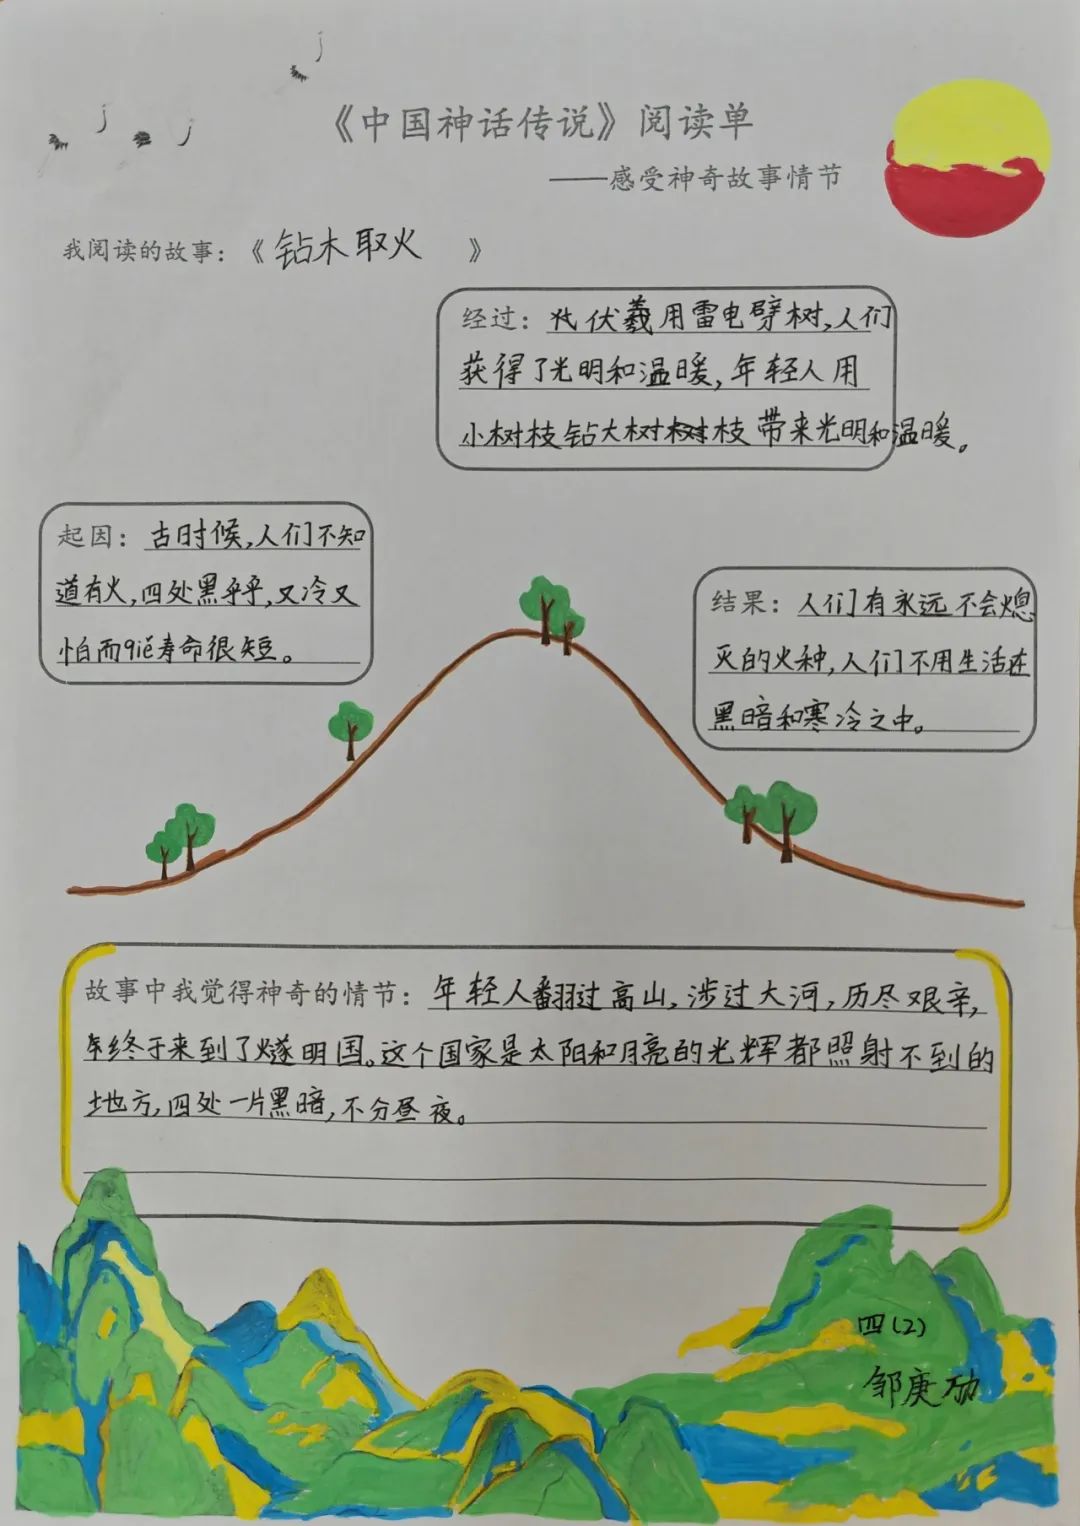 《中国神话传说》阅读单
——感受神奇故事情节
我阅读的故事：《钻木取火》
经过：伏羲用雷电劈树,人们
获得了光明和温暖,年轻人用
小树枝钻大树枝带来光明和温暖。
起因：古时候,人们不知
道有火,四处黑乎乎,又冷又
怕而qiě寿命很短。
结果：人们有永远不会熄
灭的火种,人们不用生活在
黑暗和寒冷之中。
故事中我觉得神奇的情节：年轻人翻过高山,涉过大河,历尽艰辛,
终于来到了燧明国。这个国家是太阳和月亮的光辉都照射不到的
地方,四处一片黑暗,不分昼夜。
四(2)
邹庚劢